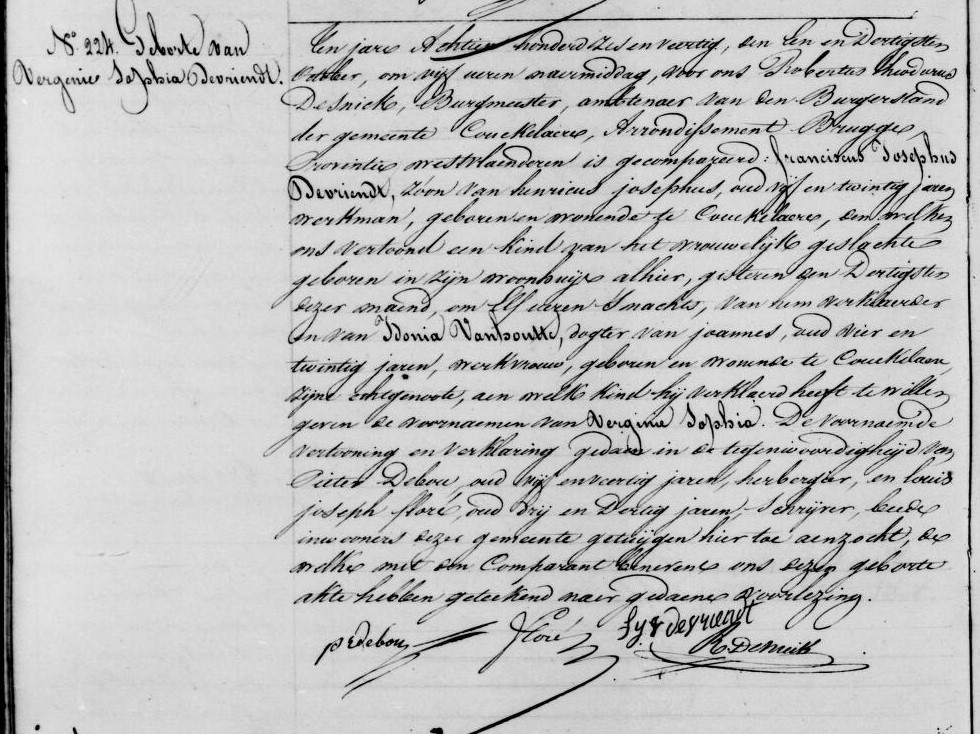 N.o 224. Geborte van
Verginie Sophia Devriendt.
Ten jare Achtien honderd Zes en veertig, den Een en Dertigsten
October, om vijf uren naermiddag, voor ons Robertus Theodorus
Desnick, Burgmeester, ambtenaer van den Burgerstand
der gemeente Couckelaere, Arrondissement Brugge,
Provintie westvlaenderen is gecompareerd: franciscus Josephus
Devriendt, Zoon van henricus josephus, oud vijf en twintig jaren
werkman, geboren en wonende te Couckelaere, den welken
ons vertoond een kind van het vrouwelijk geslachte
geboren in zijn woonhuijs alhier, gisteren den Dertigsten
dezer maend, om Elf uren Snachts, van hem verklaerder
en van Idonia Vanhoutte, dogter van joannes, oud vier en
twintig jaren, werkvrouw, geboren en wonende te Couckelaere,
zijne echtgenoote, aen welk kind hij verklaerd heeft te willen
geven de voornaemen van Verginie Sophia. De voornaemde
vertooning en verklaring gedaen in de tegenwoordigheijd van
Pieter Debou, oud vijf en veertig jaren, herbergier, en louis
joseph floré, oud drij en Dertig jaren, Schrijver, beede
inwooners dezer gemeente getuijgen hier toe aenzocht, de
welke met den Comparant benevens ons dezen geborte
akte hebben geteekend naer gedaene voorlezing.
p Debou Floré devriendt
R Desnick